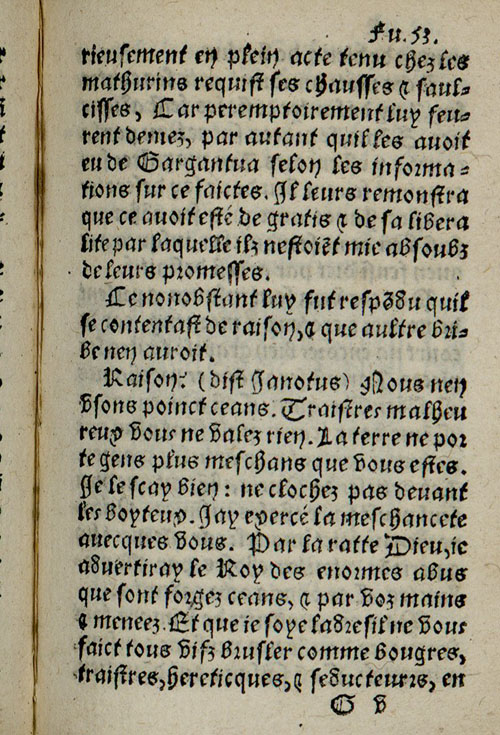 Fu. 53.
rieusement en plein acte tenu chez les
mathurins requist ses chausses & saul-
cisses, Car peremptoirement luy feu-
rent deniez, par autant quil les avoit
eu de Gargantua selon les informa-
tions sur ce faictes. Il leurs remonstra
que ce avoit esté de gratis & de sa libera
lite par laquelle ilz nestoiẽt mie absoubz
de leurs promesses.
Ce nonobstant luy fut respõdu quil
se contentast de raison, & que aultre bri-
be nen auroit.
Raison? (dist Janotus) Nous nen
usons poinct ceans. Traistres malheu
reux vous ne valez rien. La terre ne por
te gens plus meschans que vous estes.
Je le scay bien: ne clochez pas devant
les boyteux. Jay exercé la meschancete
avecques vous. Par la ratte Dieu, ie
advertiray le Roy des enormes abus
que sont forgez ceans, & par voz mains
& meneez. Et que ie soye ladre sil ne vous
faict tous vifz brusler comme bougres,
traistres, hereticques, & seducteurs, en
G v